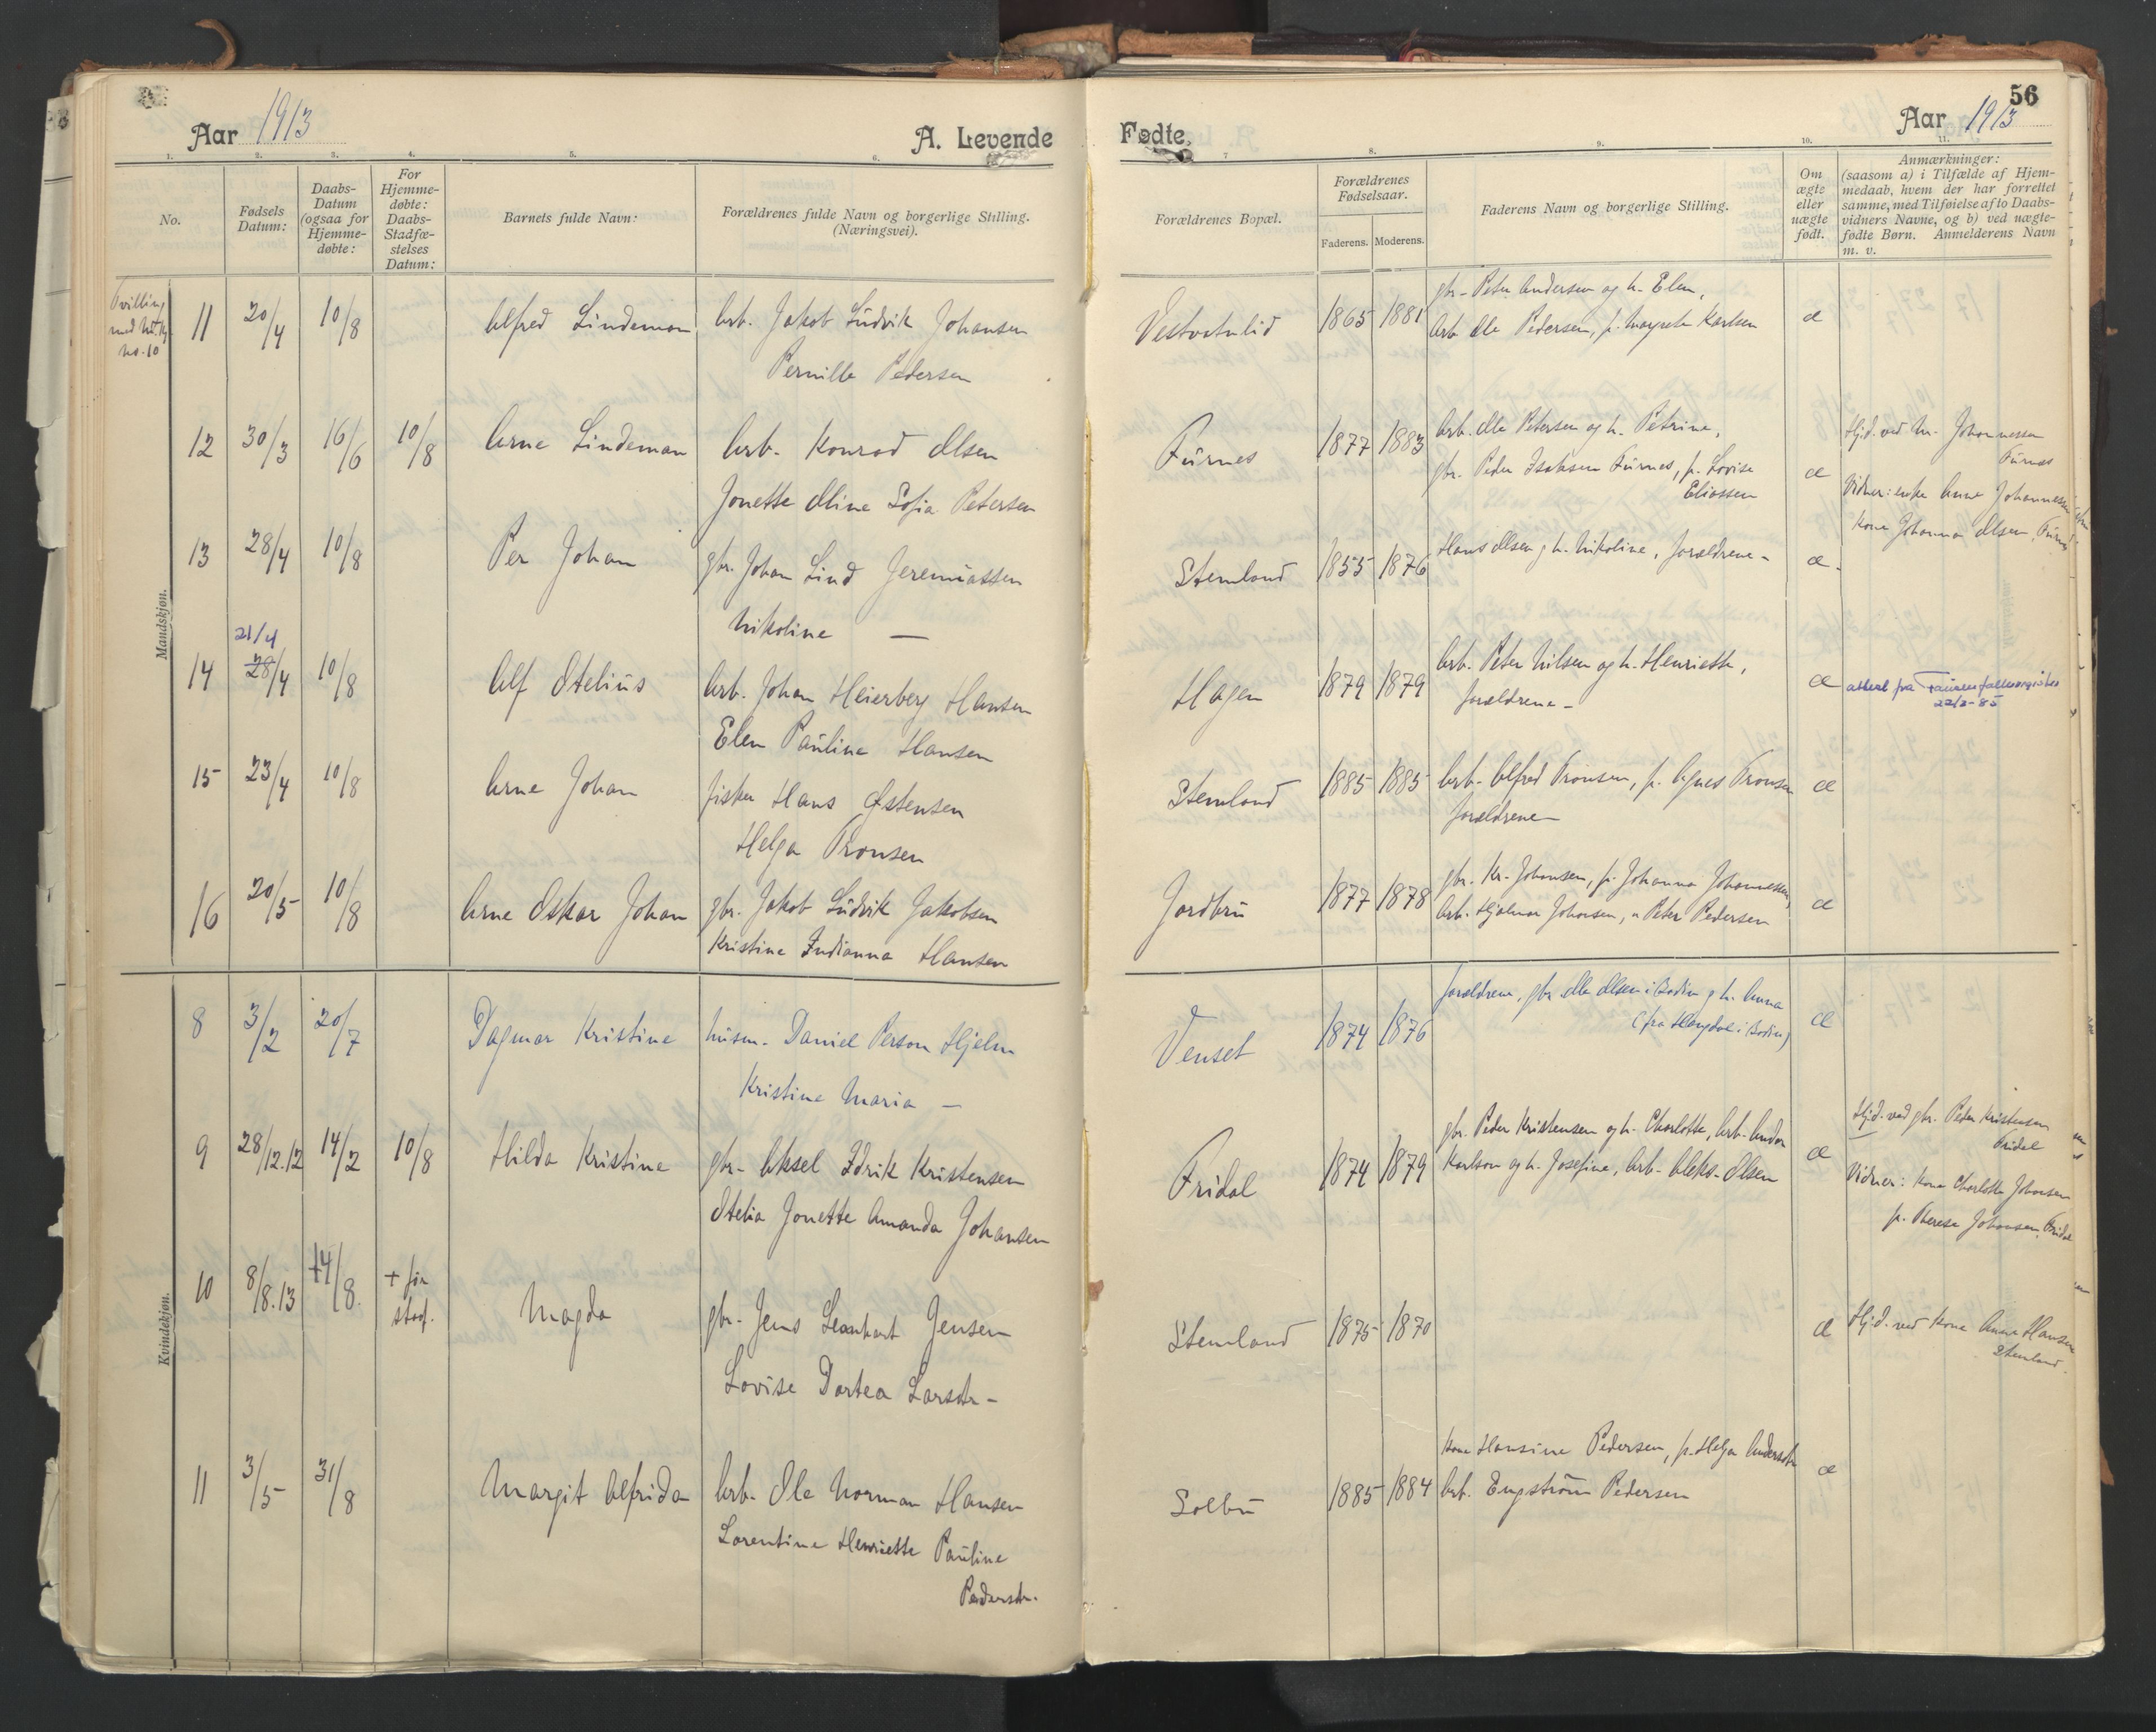 56
Aar 1913
A. Levende
Fødte.
Aar 1913
1. 2. 3. 4. 5. 6. 7 8. 9. 10. 11.
No.
Fødsels Datum:
Daabs-Datum (ogsaa for Hjemme-døbte:
For Hjemme-døbte: Daabs-Stadfæ-stelses Datum:
Barnets fulde Navn:
Forældrenes fulde Navn og borgerlige Stilling. (Næringsvei).
Forældrenes Bopæl.
Forældrenes Fødselsaar.
Faderens. Moderens.
Faderens Navn og borgerlige Stilling.
Om ægte eller uægte født.
Anmærkninger:
(saasom a) i Tilfælde af Hjem-
medaab, hvem der har forrettet
samme, med Tilføielse af to Daabs-
vidners Navne, og b) ved uægte-
fødte Børn. Anmelderens Navn
m. v.
Mandskjøn.
Tvilling
med
no. 10
11 20/4 10/8 Alfred Lindeman arb. Jakob Ludvik Johansen
Pernille Pedersen
Vestvatnlid 1865 1881 gbr. Peter Andersen og h. Elen,
arb. Ole Pedersen, p. Margrete Karlsen æ
12 30/3 16/6 10/8 Arne Lindeman Arb. Konrad Olsen
Jonette Oline Sofia Petersen
Furnes 1877 1883 Arb. Ole Petersen og h. Petrine,
gbr. Peder Isaksen Furnes, p. Lovise
Eliassen æ
Hjd. ved M. Johannessen
Furnes
Vidner: enke Anne Johannessen
Kone Johanna Olsen, Furnes
13 28/4 10/8 Per Johan gbr. Johan Lind Jeremiassen
Nikoline —
Stemland 1855 1876 Hans Olsen og h. Nikoline, forældrene - æ.
14 21/4 28/4 10/8 Alf Otelius Arb. Johan Heierberg Hansen
Elen Pauline Hansen
Hagen 1879 1879 Arb. Peter Nilsen og h. Henriette,
forældrene - æ
attest fra
22/2-85
15 23/4 10/8 Arne Johan fisker Hans Østensen
Helga Tronsen
Stemland 1885 1885 Arb. Alfred Tronsen, p. Agnes Tronsen
forældrene - æ
16 20/5 10/8 Arne Oskar Johan gbr. Jakob Ludvik Jakobsen
Kristine Indianna Hansen
Jordbru 1877 1878 gbr. Kr. Johansen, p. Johanna Johannessen,
Arb. Hjalmar Johansen, " Peter Pedersen æ
Kvindekjøn.
8 3/2 20/7 Dagmar Kristine husm. Daniel Person Hjelm
Kristine Maria —
Venset 1874 1876 forældrene, gbr Ole Olsen i Bodin og h. Anna
(fra i Bodin) æ
9 28/12.12 14/2 10/8 Hilda Kristine gbr. Aksel Idrik Kristensen
Otelia Jonette Amanda Johansen
Fridal 1874 1879 gbr. Peder Kristensen og h. Charlotte, Arb. Andor
Karlson og h. Josefine, Arb. Aleks. Olsen æ
Hjd. ved gbr. Peder Kristensen
Fridal
Vidner: Kone Charlotte Johansen
p. Therese Johansen, Fridal
10 8/8.13 +4/8. + før
stadf. Magda gbr. Jens Leonhart Jensen
Lovise Dortea Larsdtr -
Stemland 1875 1870 æ Hjd. ved Kone Anna Hansen
Stemland.
11 3/5 31/8 Margit Alfrida Arb. Ole Norman Hansen
Lorentine Henriette Pauline
Pedersdtr.
Solbu 1885 1884 Kone Hansine Pedersen, p. Helga Andersdtr
Arb. Engström Pedersen æ